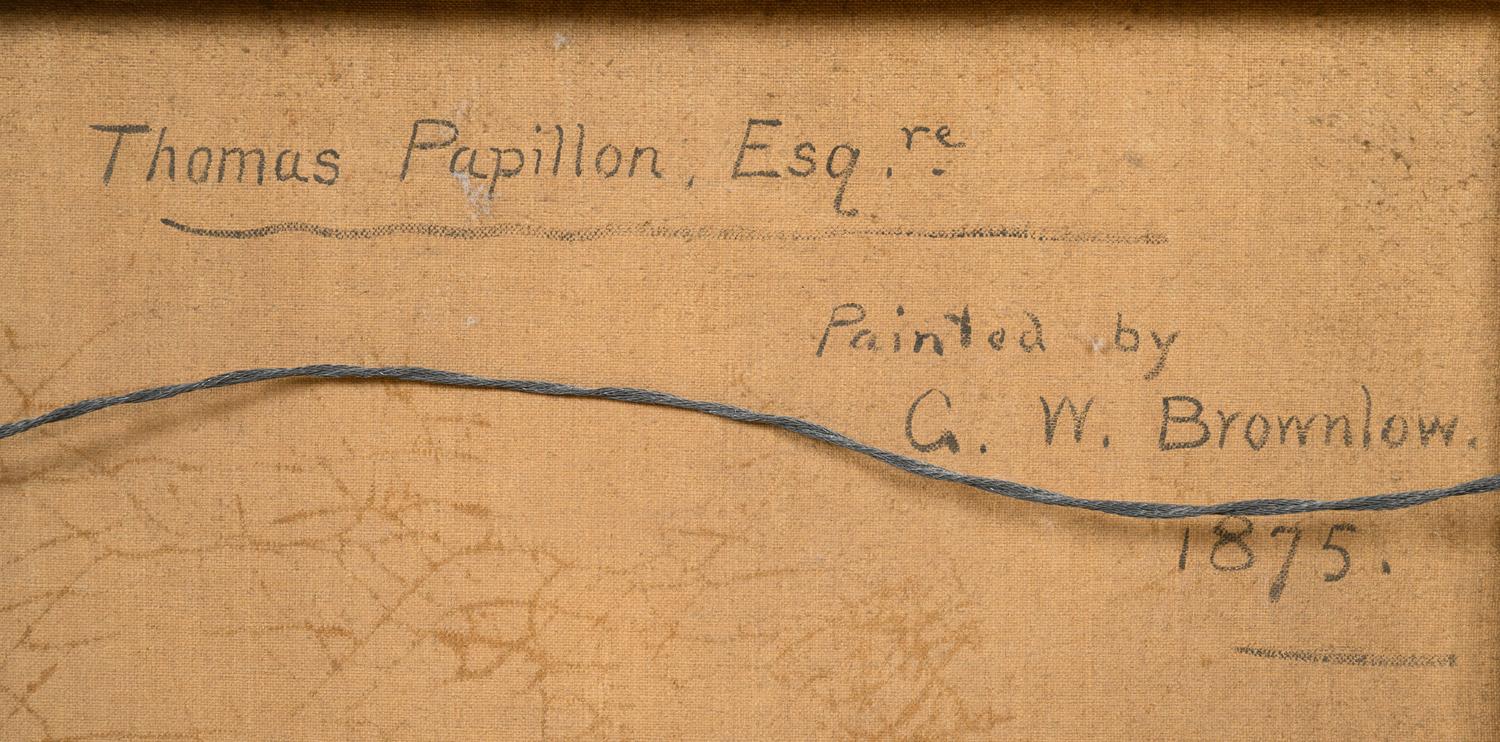 Thomas Papillon, Esq.re
Painted by
G. W. Brownlow.
1875.